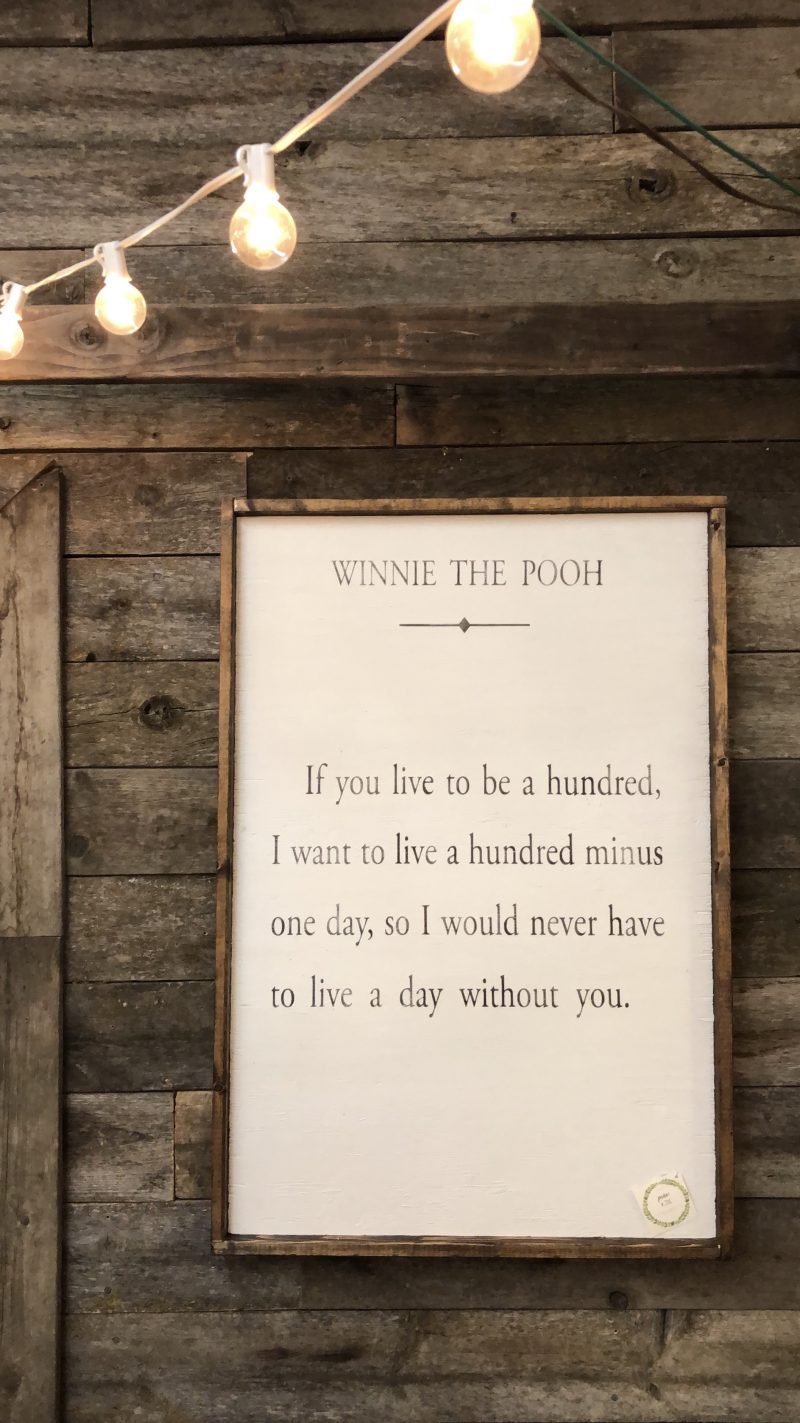 WINNIE THE POOH
If you live to be a hundred,
I want to live a hundred minus
one day, so I would never have
to live a day without you.